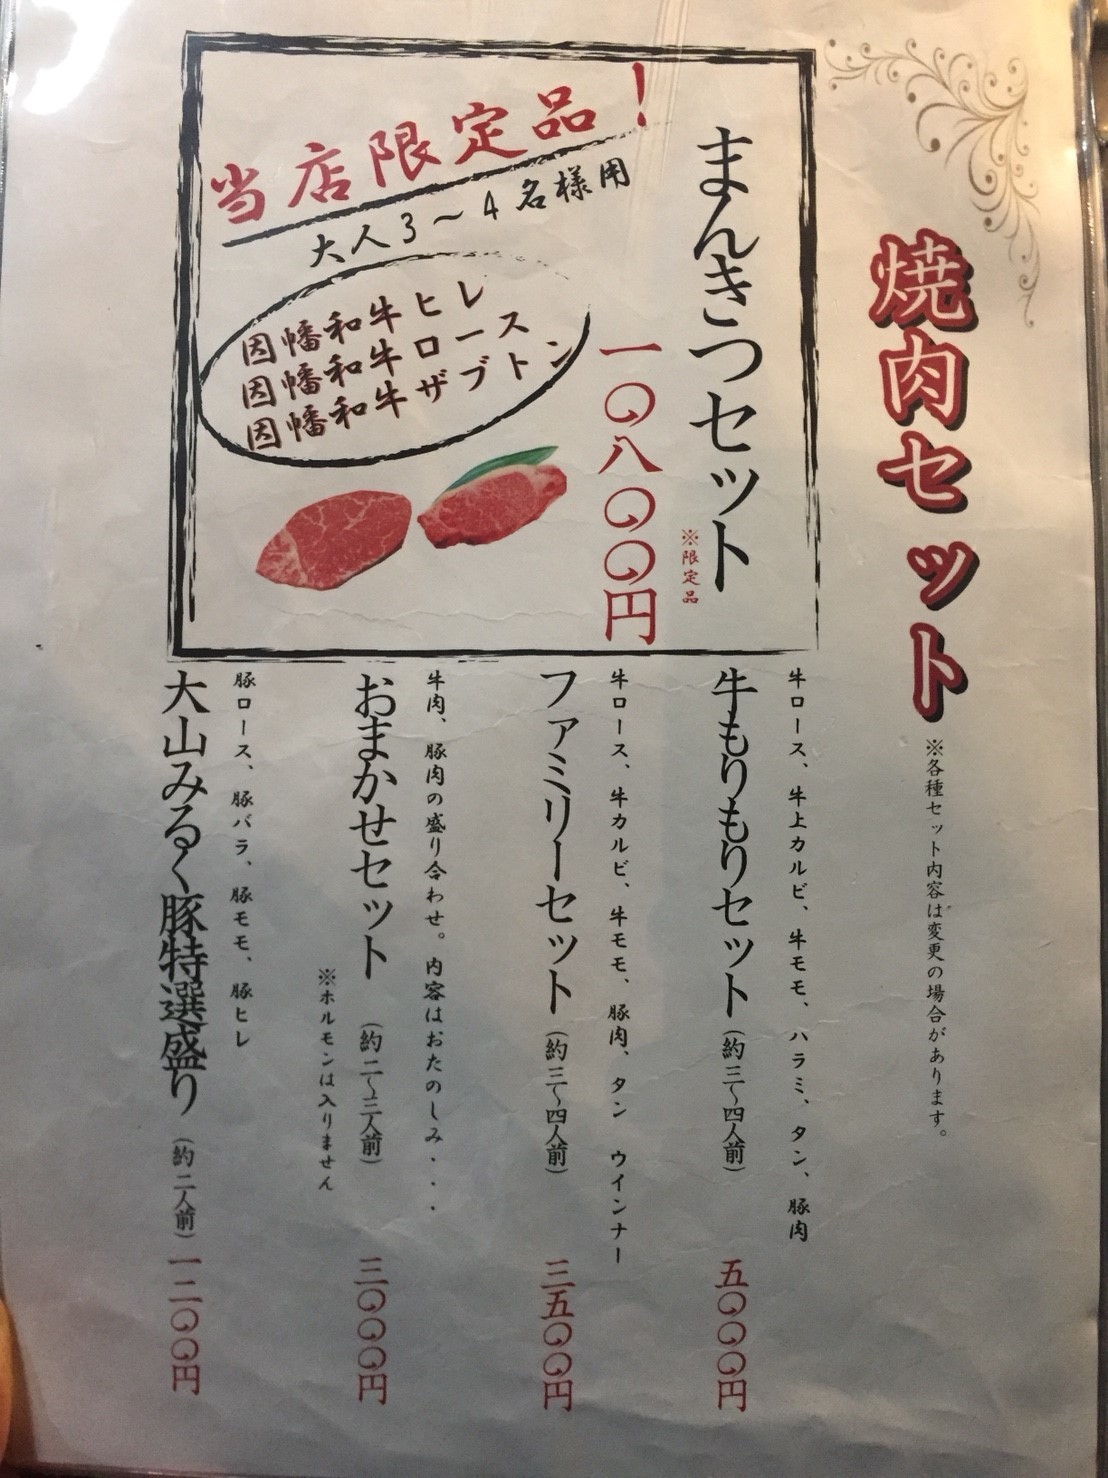 焼肉セット
※各種セット内容は変更の場合があります。
まんきつセット
※限定品
一〇八〇〇円
当店限定品！
大人3～4名様用
因幡和牛ヒレ
因幡和牛ロース
因幡和牛ザブトン
牛ロース、牛上カルビ、牛モモ、ハラミ、タン、豚肉
牛もりもりセット（約三～四人前）五〇〇〇円
牛ロース、牛カルビ、牛モモ、豚肉、タン ウインナー
ファミリーセット（約三～四人前）三五〇〇円
牛肉、豚肉の盛り合わせ。内容はおたのしみ・・・
おまかせセット（約二～三人前）三〇〇〇円
※ホルモンは入りません
豚ロース、豚バラ、豚モモ、豚ヒレ
大山みるく豚特選盛り（約二人前）一二〇〇円